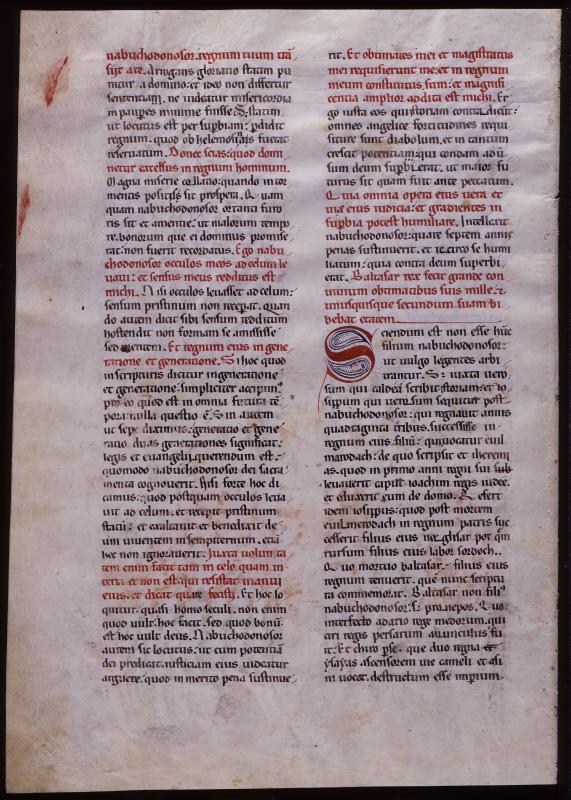 nabuchodonosor: regnum tuum tran
siit a te. Arrogans gloriatio statim pu
nitur a domino: et ideo non differtur
sententiam. ne videatur misericordia
in paupes minime fuisse. S; statim
ut locutus est per supbiam: pdidit
regnum. quod ob helemosinas fuerat
reseruatum. Donec scias: quod domi
netur excelsus in regnum hominum.
Magna miserie collatio: quando in tor
mentis positis sit prospera.
quam nabuchodonosor ortatus furo
ris sit et amentie. ut malorum tempo
re. bonorum que ei dominus promise
rat: non fuerit recordatus. Ego nabu
chodonosor occulos meos ad celum le
uaui: et sensus meus redditus est
michi. Nisi occulos leuasset ad celum:
sensum pristinum non recepit. quan
do autem dicit sibi sensum redditum
hostendit non formam se amisisse
sed mentem. Et regnum eius in gene
ratione et generatione. Si hoc quod
in scripturis dicitur in generatione
et generatione: simpliciter accipim
pro eo quod est in omnia futura te
pora: nulla questio e. Sin autem
ut sepe diximus: generatio et gene
ratio duas generationes significat.
legis et euangelii. querendum est:
quomodo nabuchodonosor dei sacra
menta cognouerit. Nisi forte hoc di
camus: quod postquam occulos leua
uit ad celum. et recepit pristinum
statu: et exaltauit et benedixit de
um uiuentem in sempiternum. etia
hec non ignorauerit. Juxta uolun ta
tem enim facit tam in celo quam in
terra et non est: qui resistat manui
eius. et dicat quare fecisti. Et hoc lo
quitur. quasi homo seculi. non enim
quod uult. hoc facit. sed quod bonu
est hoc uult deus. Nabuchodonosor
autem sic locutus. ut cum potentia
dei predicat. iusticiam eius uideatur
arguere. quod in merito pena sustinue
rit. Et obtimates mei et magistratus
mei requisierunt me. et in regnum
meum constitutus sum: et magnifi
centia amplior addita est michi. Er
go iusta eos qui storiam contra dicit:
omnes angelice fortitudines requi
siture sunt diabolum. et in tantum
crescit potentiam: qui condam aduer
sum deum supbierat. ut maior fu
turus sit quam fuit ante peccatum.
Quia omnia opera eius uera et
uie eius iudicia: et gradientes in
supbia potest humiliare. Intellexit
nabuchodonosor: quare septem annis
penas sustinuerit. et iccirco se humi
liatum: quia contra deum superbi
erat. Baltasar rex fecit grande con
uiuium obtimatibus suis mille: et
unusquisque secundum suam bi
bebat etatem.
Sciendum est non esse huc
filium nabuchodonosor:
ut uulgo legentes arbi
trantur. S; iuxta uero
sum qui caldea scribit storiam: et io
sippum qui uero sum sequitur post
nabuchodonosor: qui regnauit annis
quadraginta tribus. successisse in
regnum eius. filiu: qui uocatur euil
marodach: de quo scripsit et iheremi
as. quod in primo anni regni sui sub
leuauerit caput ioachim regis iudee.
et eduxerit eum de domo. Refert
idem iosippus: quod post mortem
euilmerodach in regnum patris suc
cesserit filius eius neglisar post que
rursum filius eius labor sordoch.
Quo mortuo baltasar. filius eius
regnum tenuerit. que nunc scriptu
ra commemorat. Baltasar non fili
nabuchodonosor: s; pronepos. Quo
interfecto a dario rege medorum. qui
cari regis persarum auunculus fu
it: Et chiro pse. que duo regna et
ysayas. ascensorem uie cameli et asi
ni uocet. destructum esse imperium